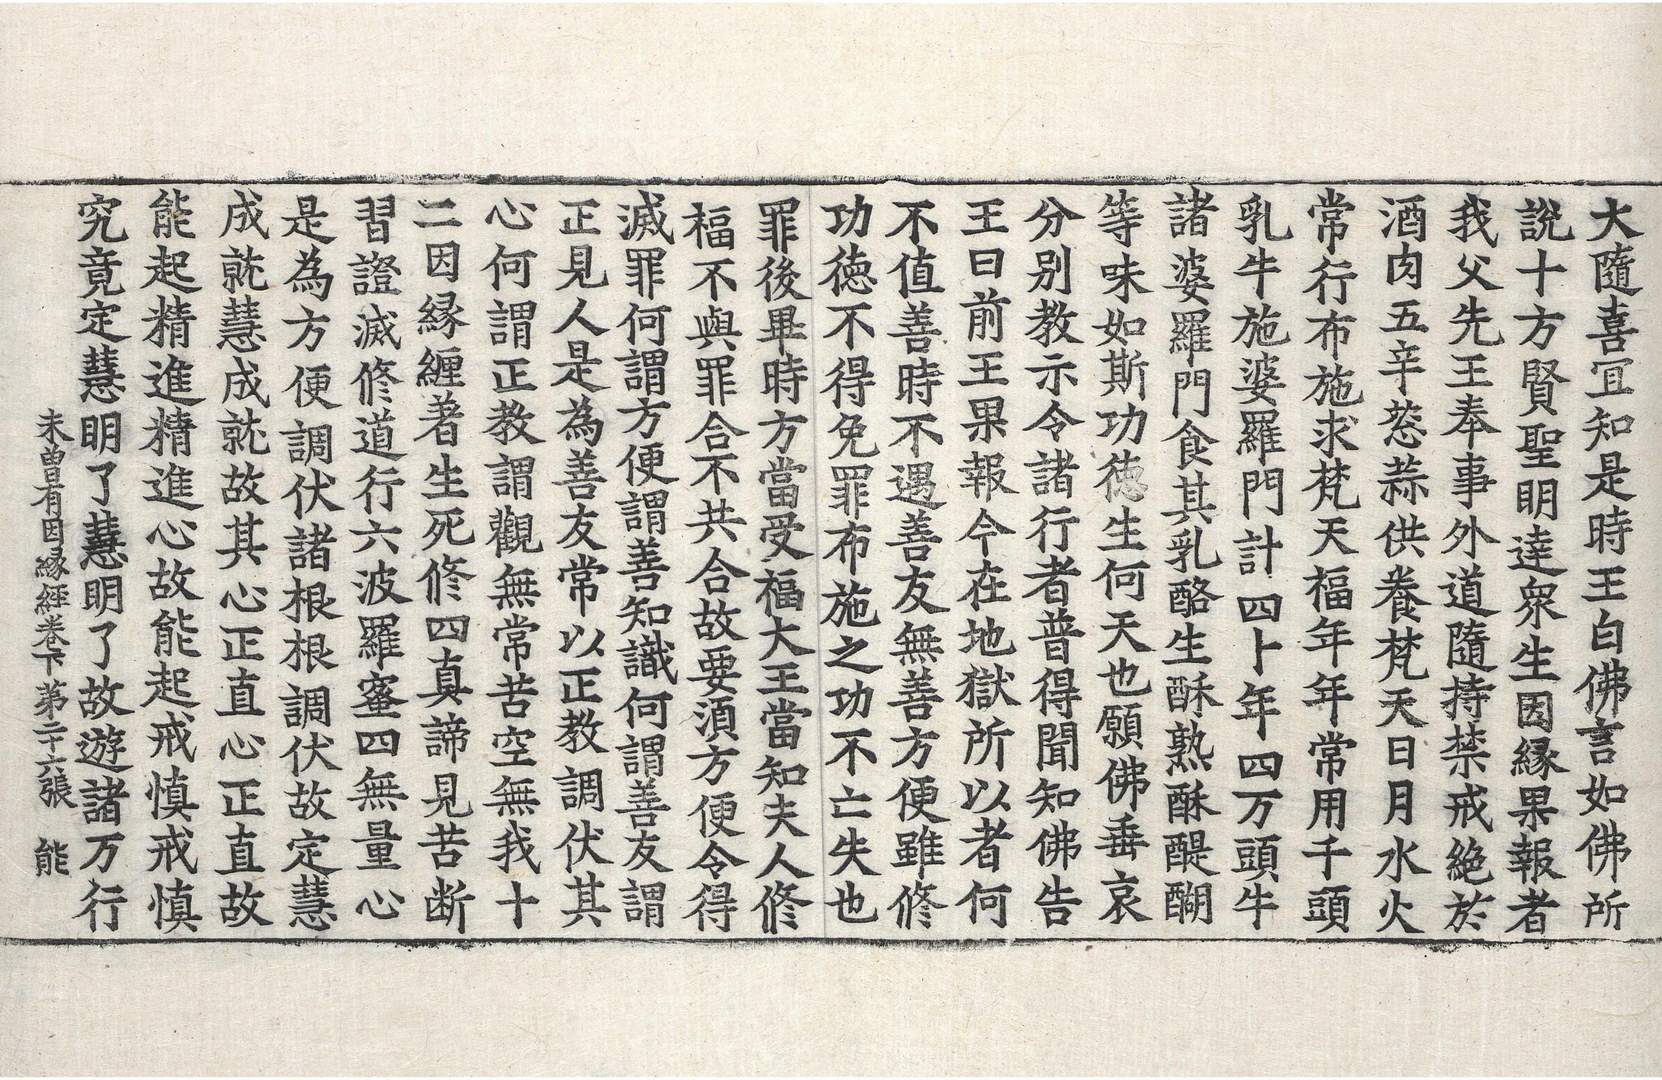 大隨喜宜知是時王白佛言如佛所
說十方賢聖明達衆生因緣果報者
我父先王奉事外道隨持禁戒絶於
酒肉五辛葱蒜供養梵天日月水火
常行布施求梵天福年年常用千頭
乳牛施婆羅門計四卜年四万頭牛
諸婆羅門食其乳酪生酥熟酥醍醐
等味如斯功德生何天也願佛垂哀
分別教示令諸行者普得聞知佛告
王曰前王果報今在地獄所以者何
不值善時不遇善友無善方便雖修
功徳不得免罪布施之功不亡失也
罪後畢時方當受福大王當知夫人修
福不與罪合不共合故要須方便令得
滅罪何謂方便謂善知識何謂善友謂
正見人是為善友常以正教調伏其
心何謂正教謂觀無常苦空無我十
二因縁纏著生死修四真諦見苦断
習證滅修道行六波羅蜜四無量心
是為方便調伏諸根根調伏故定慧
成就慧成就故其心正直心正直故
能起精進精進心故能起戒慎戒慎
究竟定慧明了慧明了故遊諸万行
未曾有因縁經卷下第二十六張 能